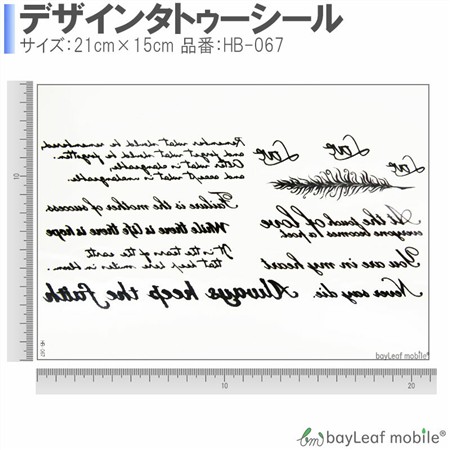 デザインタトゥーシール
サイズ:21cm×15cm 品番:HB-067
Remember what should be remembered,
and forget what should be forgotten.
Alter what is changeable,
and accept what is unchangeable.
Love
Love
Love
Failure is the mother of success
While there is life there is hope
At the touch of love
everyone becomes a poet
It is the tears of the earth
that keep her smiles in bloom.
You are in my heart
Always keep the faith
Never say die
HB-067
bayLeaf mobile®
10
10
20
bm bayLeaf mobile®